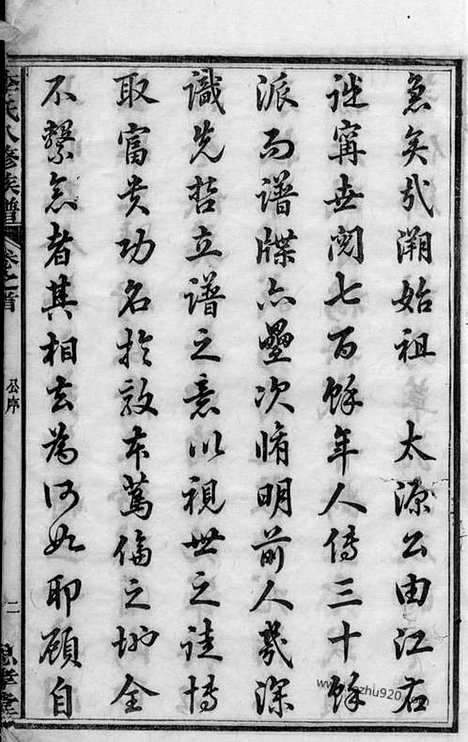 急矣哉溯始祖 太源公由江右
迁甯世閱七百餘年人傳三十餘
派而譜牒亦疊次脩明前人幾深
識先哲立譜之意以視世之誇
取富貴功名於敦本篤倫之地全
不繫念者其相去為何如耶顧自
氏八修族譜 卷之首 公序 二
www.zhu920